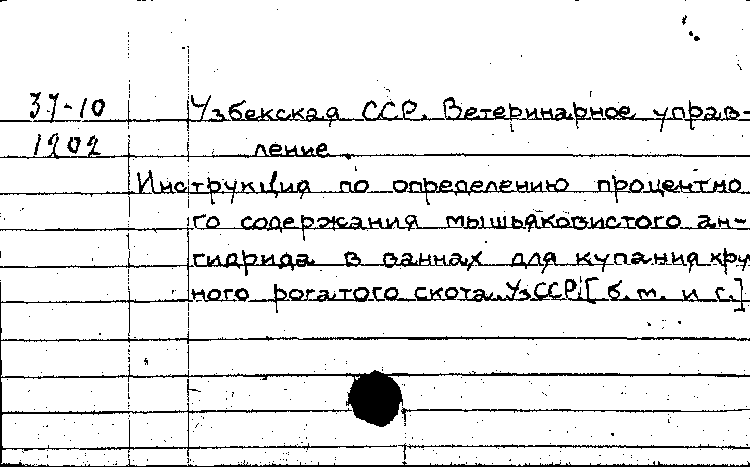 37-10 Узбекская ССР. Ветеринарное управ-
1202 ление.
Инструкция по определению процентно
го содержания мышьяковистого ан-
гидрида в ваннах для купания кру
ного рогатого скота. УзССР, [б. м. и г.]